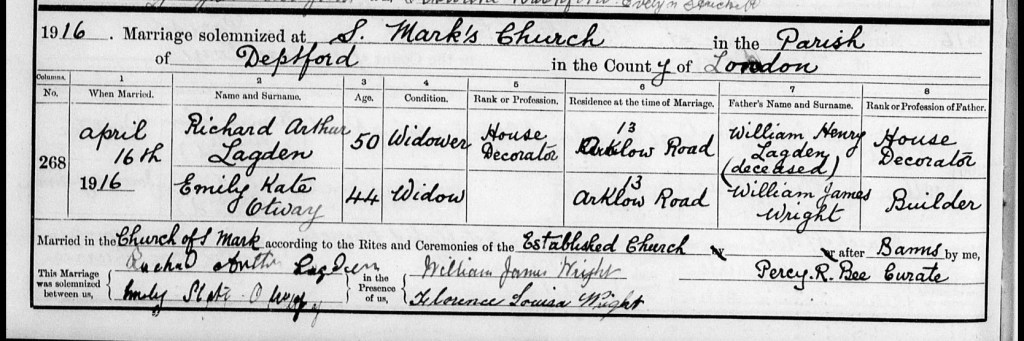 Evelyn
1916. Marriage solemnized at S. Mark's Church in the Parish
of Deptford in the County of London
Columns. 1 2 3 4 5 6 7 8
No. When Married. Name and Surname. Age. Condition. Rank or Profession. Residence at the time of Marriage. Father's Name and Surname. Rank or Profession of Father.
268
April
16th
1916
Richard Arthur
Lagden
50
Widower
House
Decorator
13
Arklow Road
William Henry
Lagden
(deceased)
House
Decorator
Emily Kate
Otway
44
Widow
13
Arklow Road
William James
Wright
Builder
Married in the Church of S Mark according to the Rites and Ceremonies of the Established Church by or after Banns by me,
Percy. R. Bee Curate
This Marriage
was solemnized
between us,
Richad Arthur Lagden
Emily Kate Otway
in the
Presence
of us,
William James Wright
Florence Louisa Wright